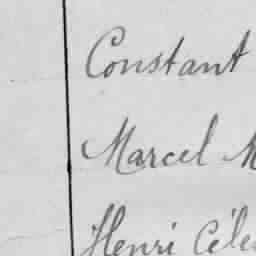 Constant
Marcel M
Henri Céle